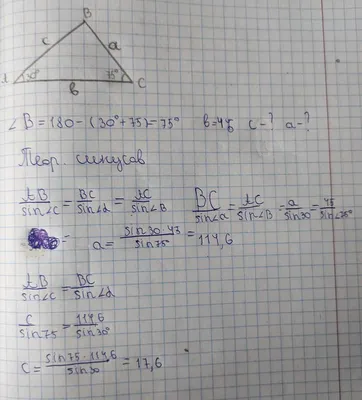 B
c a
A 30° 75° C
b
∠B=180-(30°+75)=75° b=4,5 c-? a-?
Теор. синусов
AB/sin∠C = BC/sin∠A = AC/sin∠B BC/sin∠a = AC/sin∠B = a/sin30° = 45/sin∠75°
= a = sin30·43/sin75 = 114,6
AB/sin∠C = BC/sin∠A
c/sin75 = 114,6/sin30°
c = sin75·114,6/sin30 = 17,6